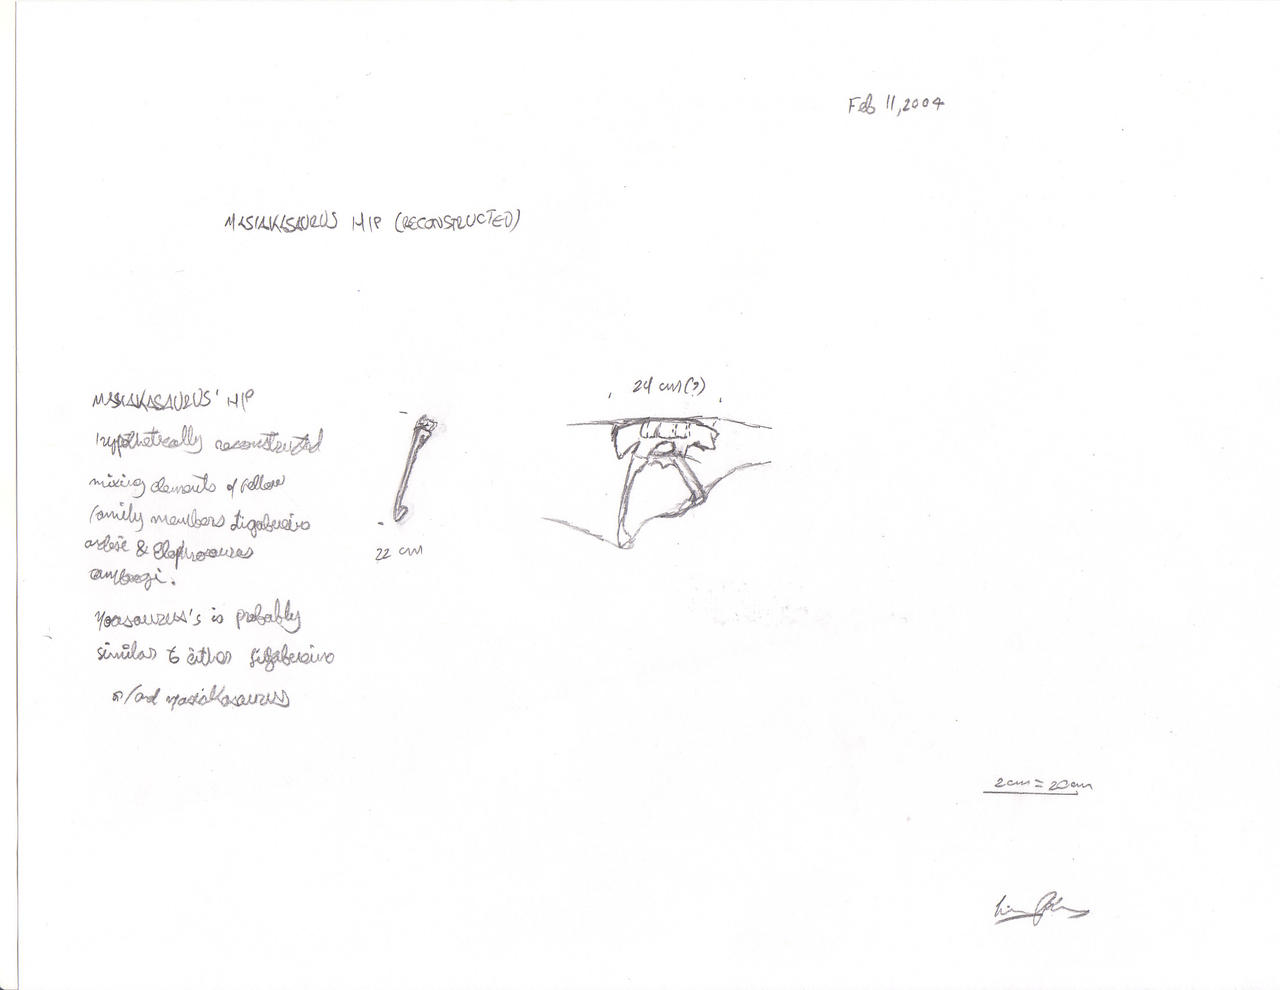 Feb 11, 2004
MASIAKASAURUS HIP (RECONSTRUCTED)
24 cm (?)
MASIAKASAURUS' HIP
hypothetically reconstructed
mixing elements of fellow
family members Ligabueino
andesi & Elaphrosaurus
bambergi.
22 cm
Noasaurus's is probably
similar to either Ligabueino
or/and Masiakasaurus
2cm = 20cm